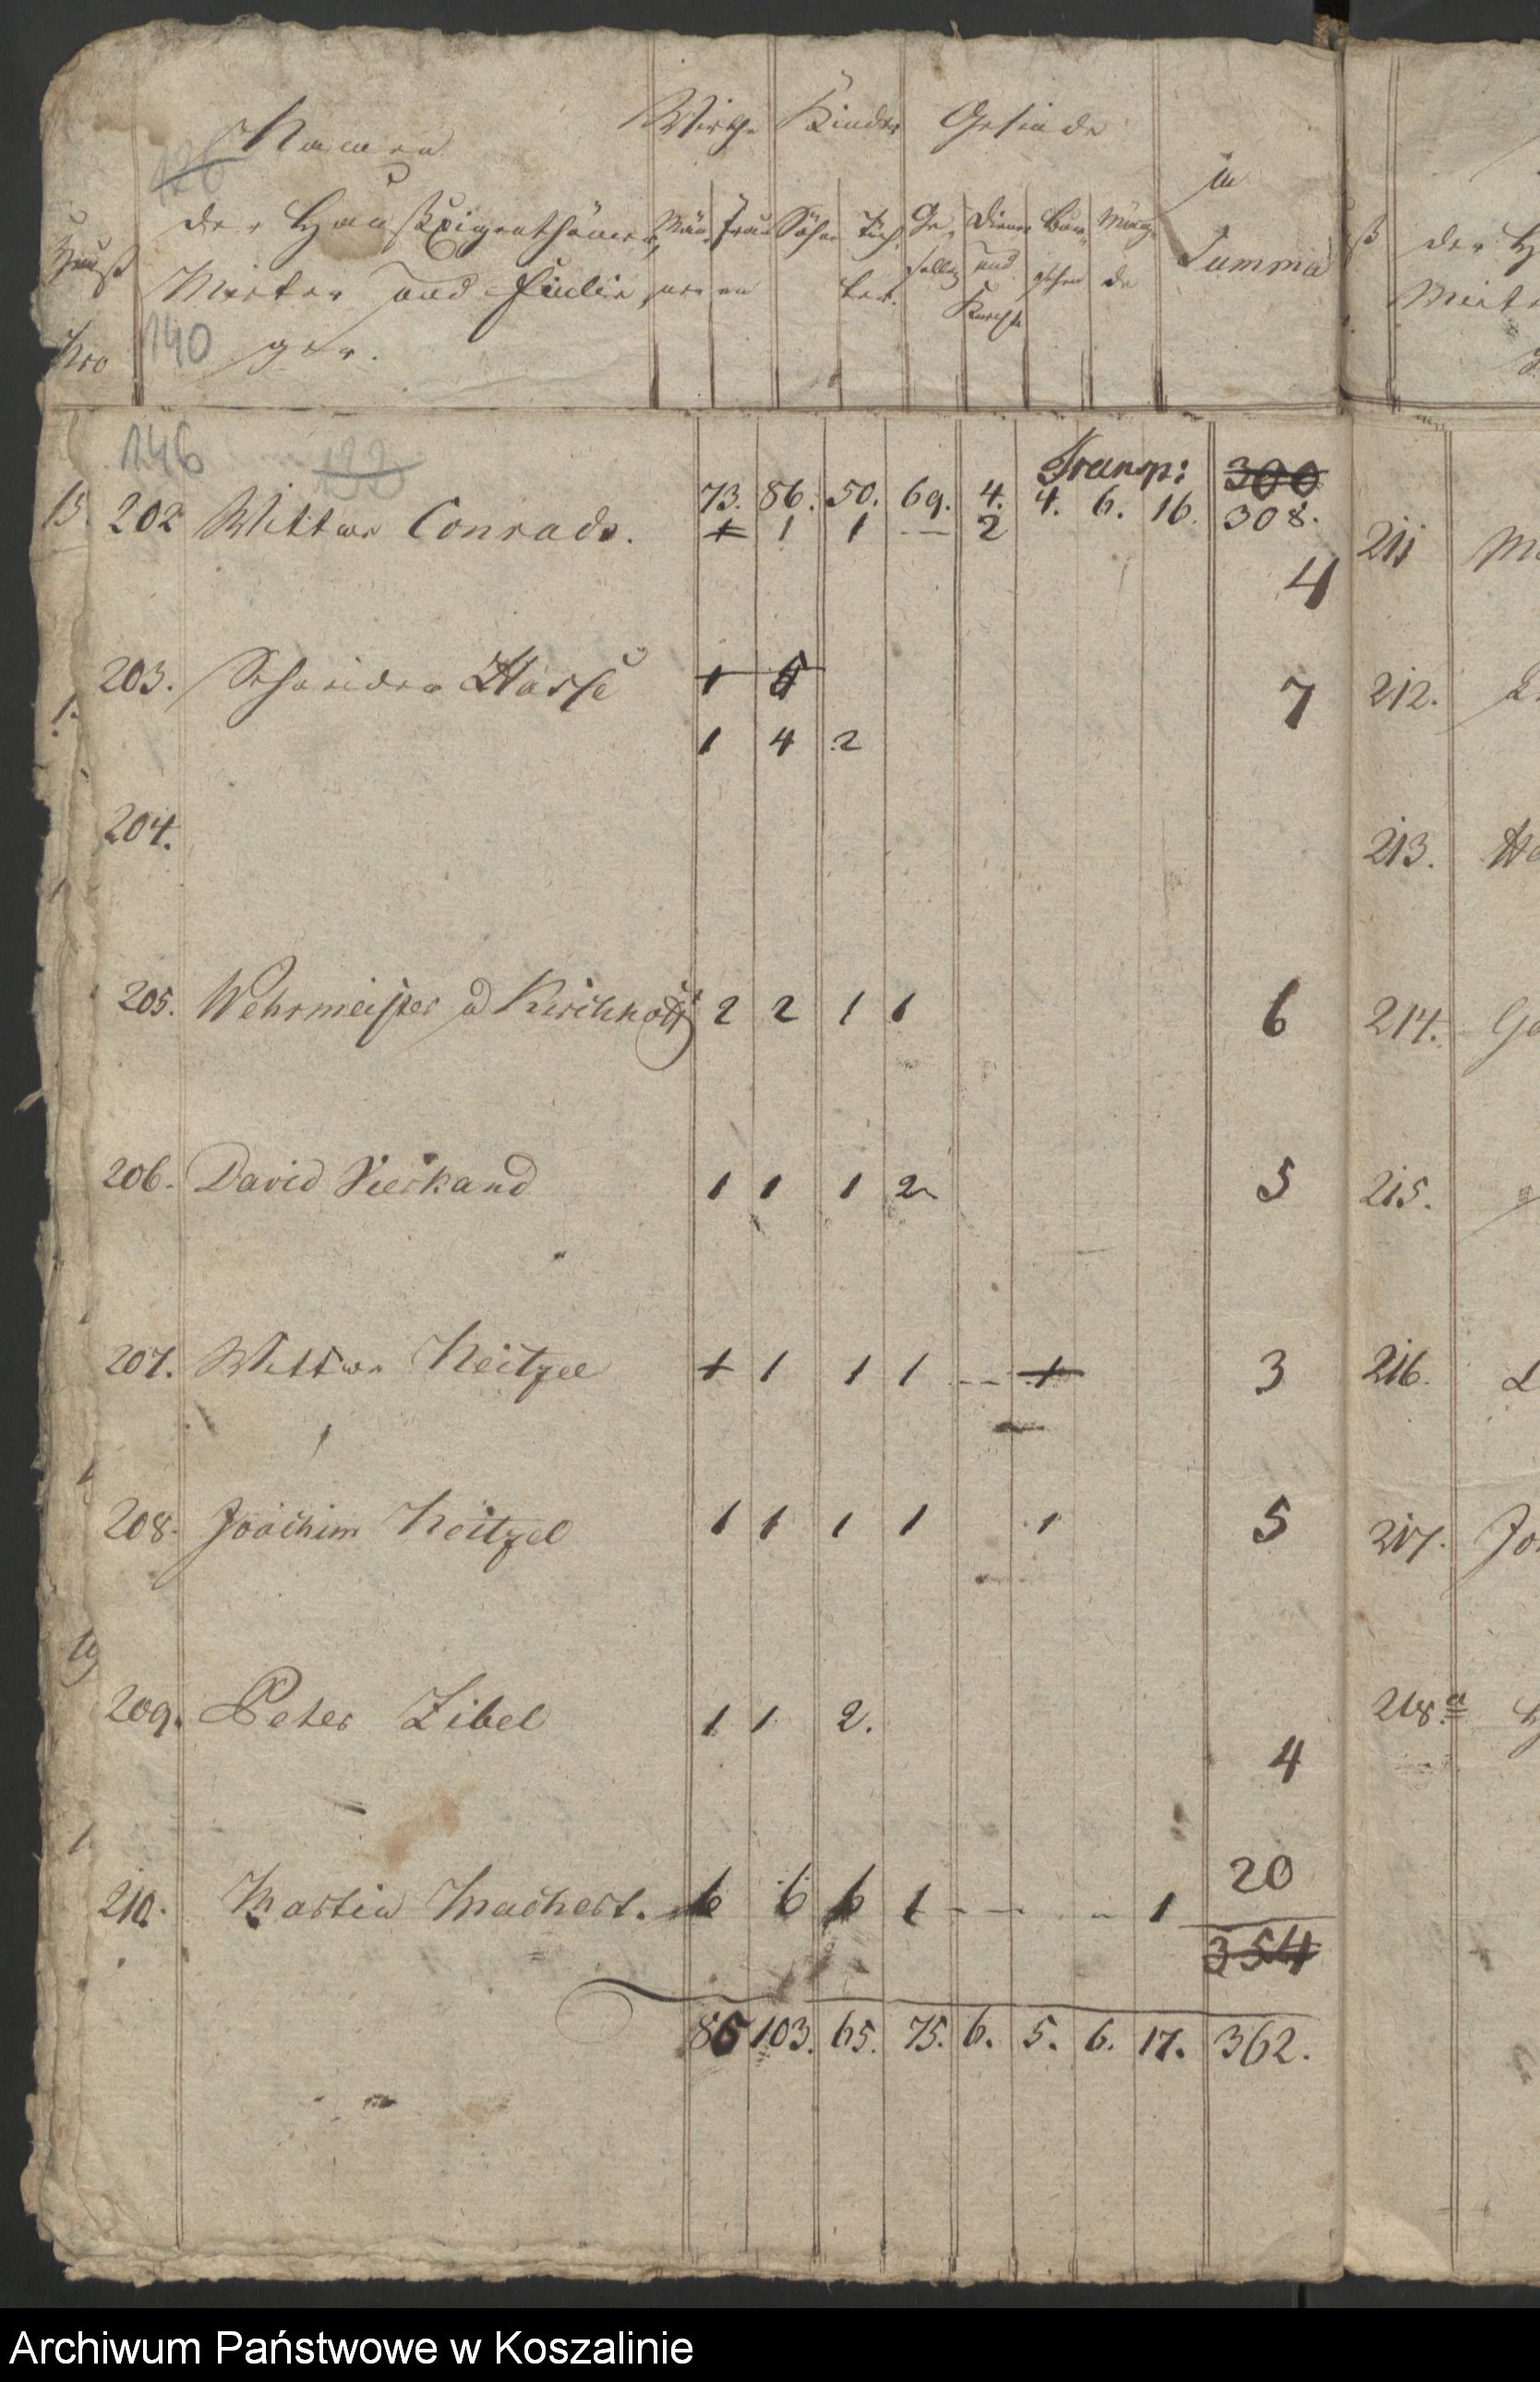 Namen Wirthe Kinder Gesinde
in
Hauß der Haußeigenthümer, Män- Frau Söhne Töch- Ge- Diener Bur- Mäg- Summa
Mieter und Einlie- ner en ter. sellen und schen de
Nro 140 ger. Knechte
146
Transp: 300
73. 86. 50. 69. 4. 4. 6. 16. 308.
202 Wittwe Conrads. 1 1 1 — 2
4
203. Schneider Hasse 1 5
7
1 4 2
204.
205. Wehrmeister u Kirchhoff 2 2 1 1 6
206. David Vierkand 1 1 1 2 5
207. Wittwe Neitzel 1 1 1 1 -- 1 3
208. Joachim Neitzel 1 1 1 1 1 5
209. Peter Zibel 1 1 2.
4
20
210. Martin Machert. 6 6 6 1 - - - 1
354
86 103. 65. 75. 6. 5. 6. 17. 362.
der H
211
212.
213.
214.
215.
216.
217. Jo
218.a
Archiwum Państwowe w Koszalinie